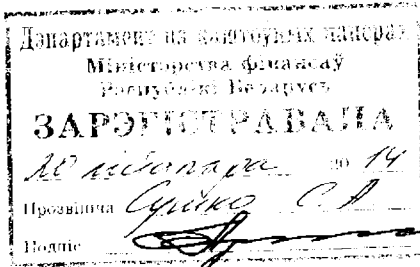 Дэпартамент па каштоўных паперах
Міністэрства фінансаў
Рэспублікі Беларусь
ЗАРЭГІСТРАВАНА
20 20 14
Прозвішча С. А.
Подпіс